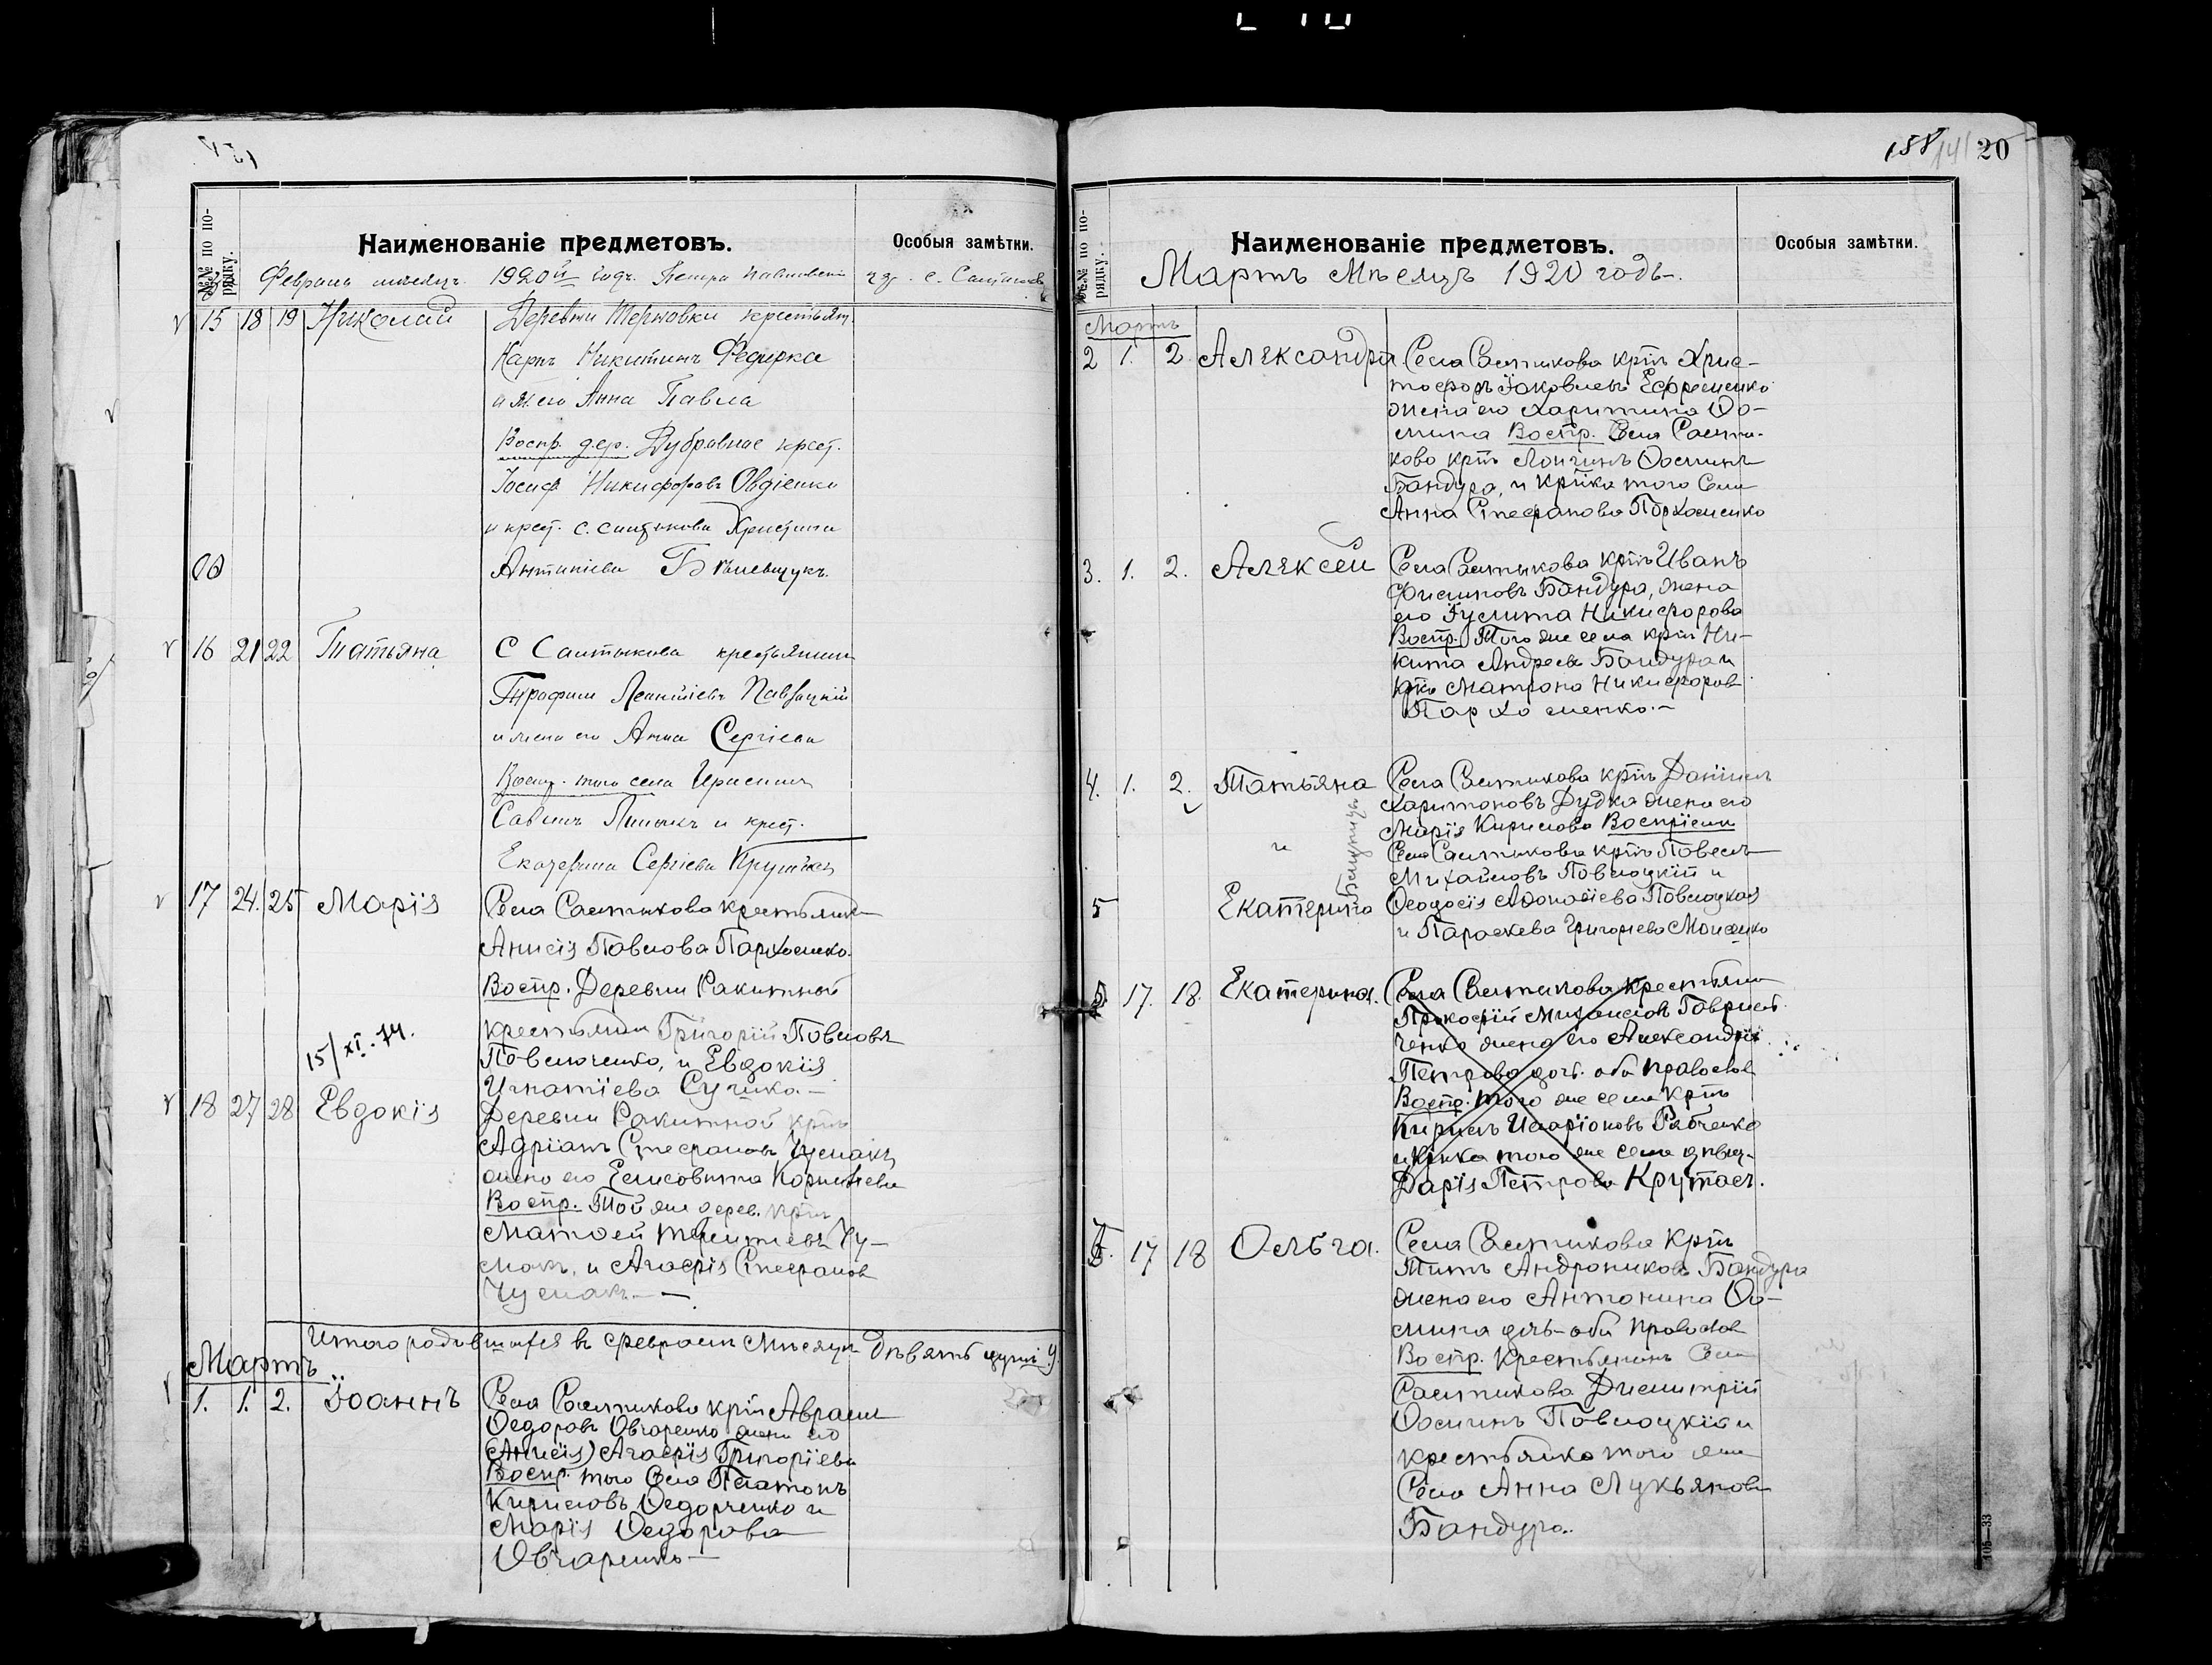 158 141 20
№№ по по-
рядку.
Наименованіе предметовъ.
Особыя замѣтки.
Февраль мѣсяцъ. 1920й годъ.
15 18 19 Николай
Деревни Терновки крестьян.
Карпъ Никитинъ Федирка
Анна Павла
Воспр. дер. Дубравное крест.
Іосиф Никифоровъ Овдіенко
и крест. с. Христина
Антипіева
16 21 22 Татьяна
С Салтыкова крестьянин
Трофим Леонтіевъ Павлоцкій
и жена его Анна Сергіева
Воспр. того села
Саввинъ и крест.
Екатерина Сергіева
17 24. 25 Марія
Села Салтыкова крестьянка
Анисія Павлова Пархоменко.
Воспр. Деревни Ракитной
крестьянин Григорій Павловъ
Павлюченко, и Евдокія
Игнатіева Сучика.—
15/XI.74.
18 27 28 Евдокія
Деревни Ракитной крт
Адріанъ Стефановъ Чумакъ
жена его Елисовета Корнилiева
Воспр. Той же дерев. крт
Матѳей Чу-
макъ, и Агафія Стефанов
Чумакъ.—
Итого родившихся въ феврали Мѣсяцѣ Девять душъ 9.
Мартъ
1. 1. 2. Іоаннъ
Села Салтыкова крт Аврамъ
Ѳедоровъ Овчаренко жена его
(Анисія) Агафія Григоріева
Воспр. того Села Платонъ
Кириловъ Ѳедорченко и
Марія Ѳедорова
Овчаренко—
№№ по по-
рядку.
Наименованіе предметовъ.
Особыя замѣтки.
Мартъ Мѣсяцъ 1920 годъ.
Мартъ
2 1. 2. Александра
Села Салтыкова крт Хрис-
тофоръ Іаковлевъ Ефременко
жена его Харитина Ѳо-
мина Воспр. Села Салты-
кова крт Лонгинъ Ѳоминъ
Бандура, и крт-ка того Села
Анна Стефанова Пархоменко
3. 1. 2. Алексей
Села Салтыкова крт Иванъ
Филиповъ Бандура, жена
его Гулита Никифорова
Воспр. Того же села крт Ни-
кита Андреевъ Бандура и
Матрона Никифоров
Пархоменко.—
4. 1. 2. Татьяна
Села Салтыкова крт Даніилъ
Харитоновъ Дудка жена его
Марія Кирилова Воспріемн
и
Близнецы
Села Салтыкова крт Павелъ
Михайловъ Павлоцкій и
5 Екатерина
Ѳеодосія Аѳонасіева Павлоцкая
и Параскева Григорьева Моисеенко
5. 17. 18. Екатерина.
Села Салтыкова крестьянин
Прокофій Михаиловъ Гаврил-
ченко жена его Александра
Петрова доч. оба православ
Воспр. того же села крт
Кирилъ Иларіоновъ Рабченко
и крт-ка того же села девиц-
Дарія Петрова Крутась.
6. 17 18 Ольга.
Села Салтыкова крт
Титъ Андрониковъ Бандура
жена его Антонина Ѳо-
мина дчь-оба православ
Воспр. крестьянинъ Села
Салтыкова Димитрій
Ѳоминъ Павлоцкій и
крестьянка того же
Села Анна Лукьянова
Бандура.
105—33